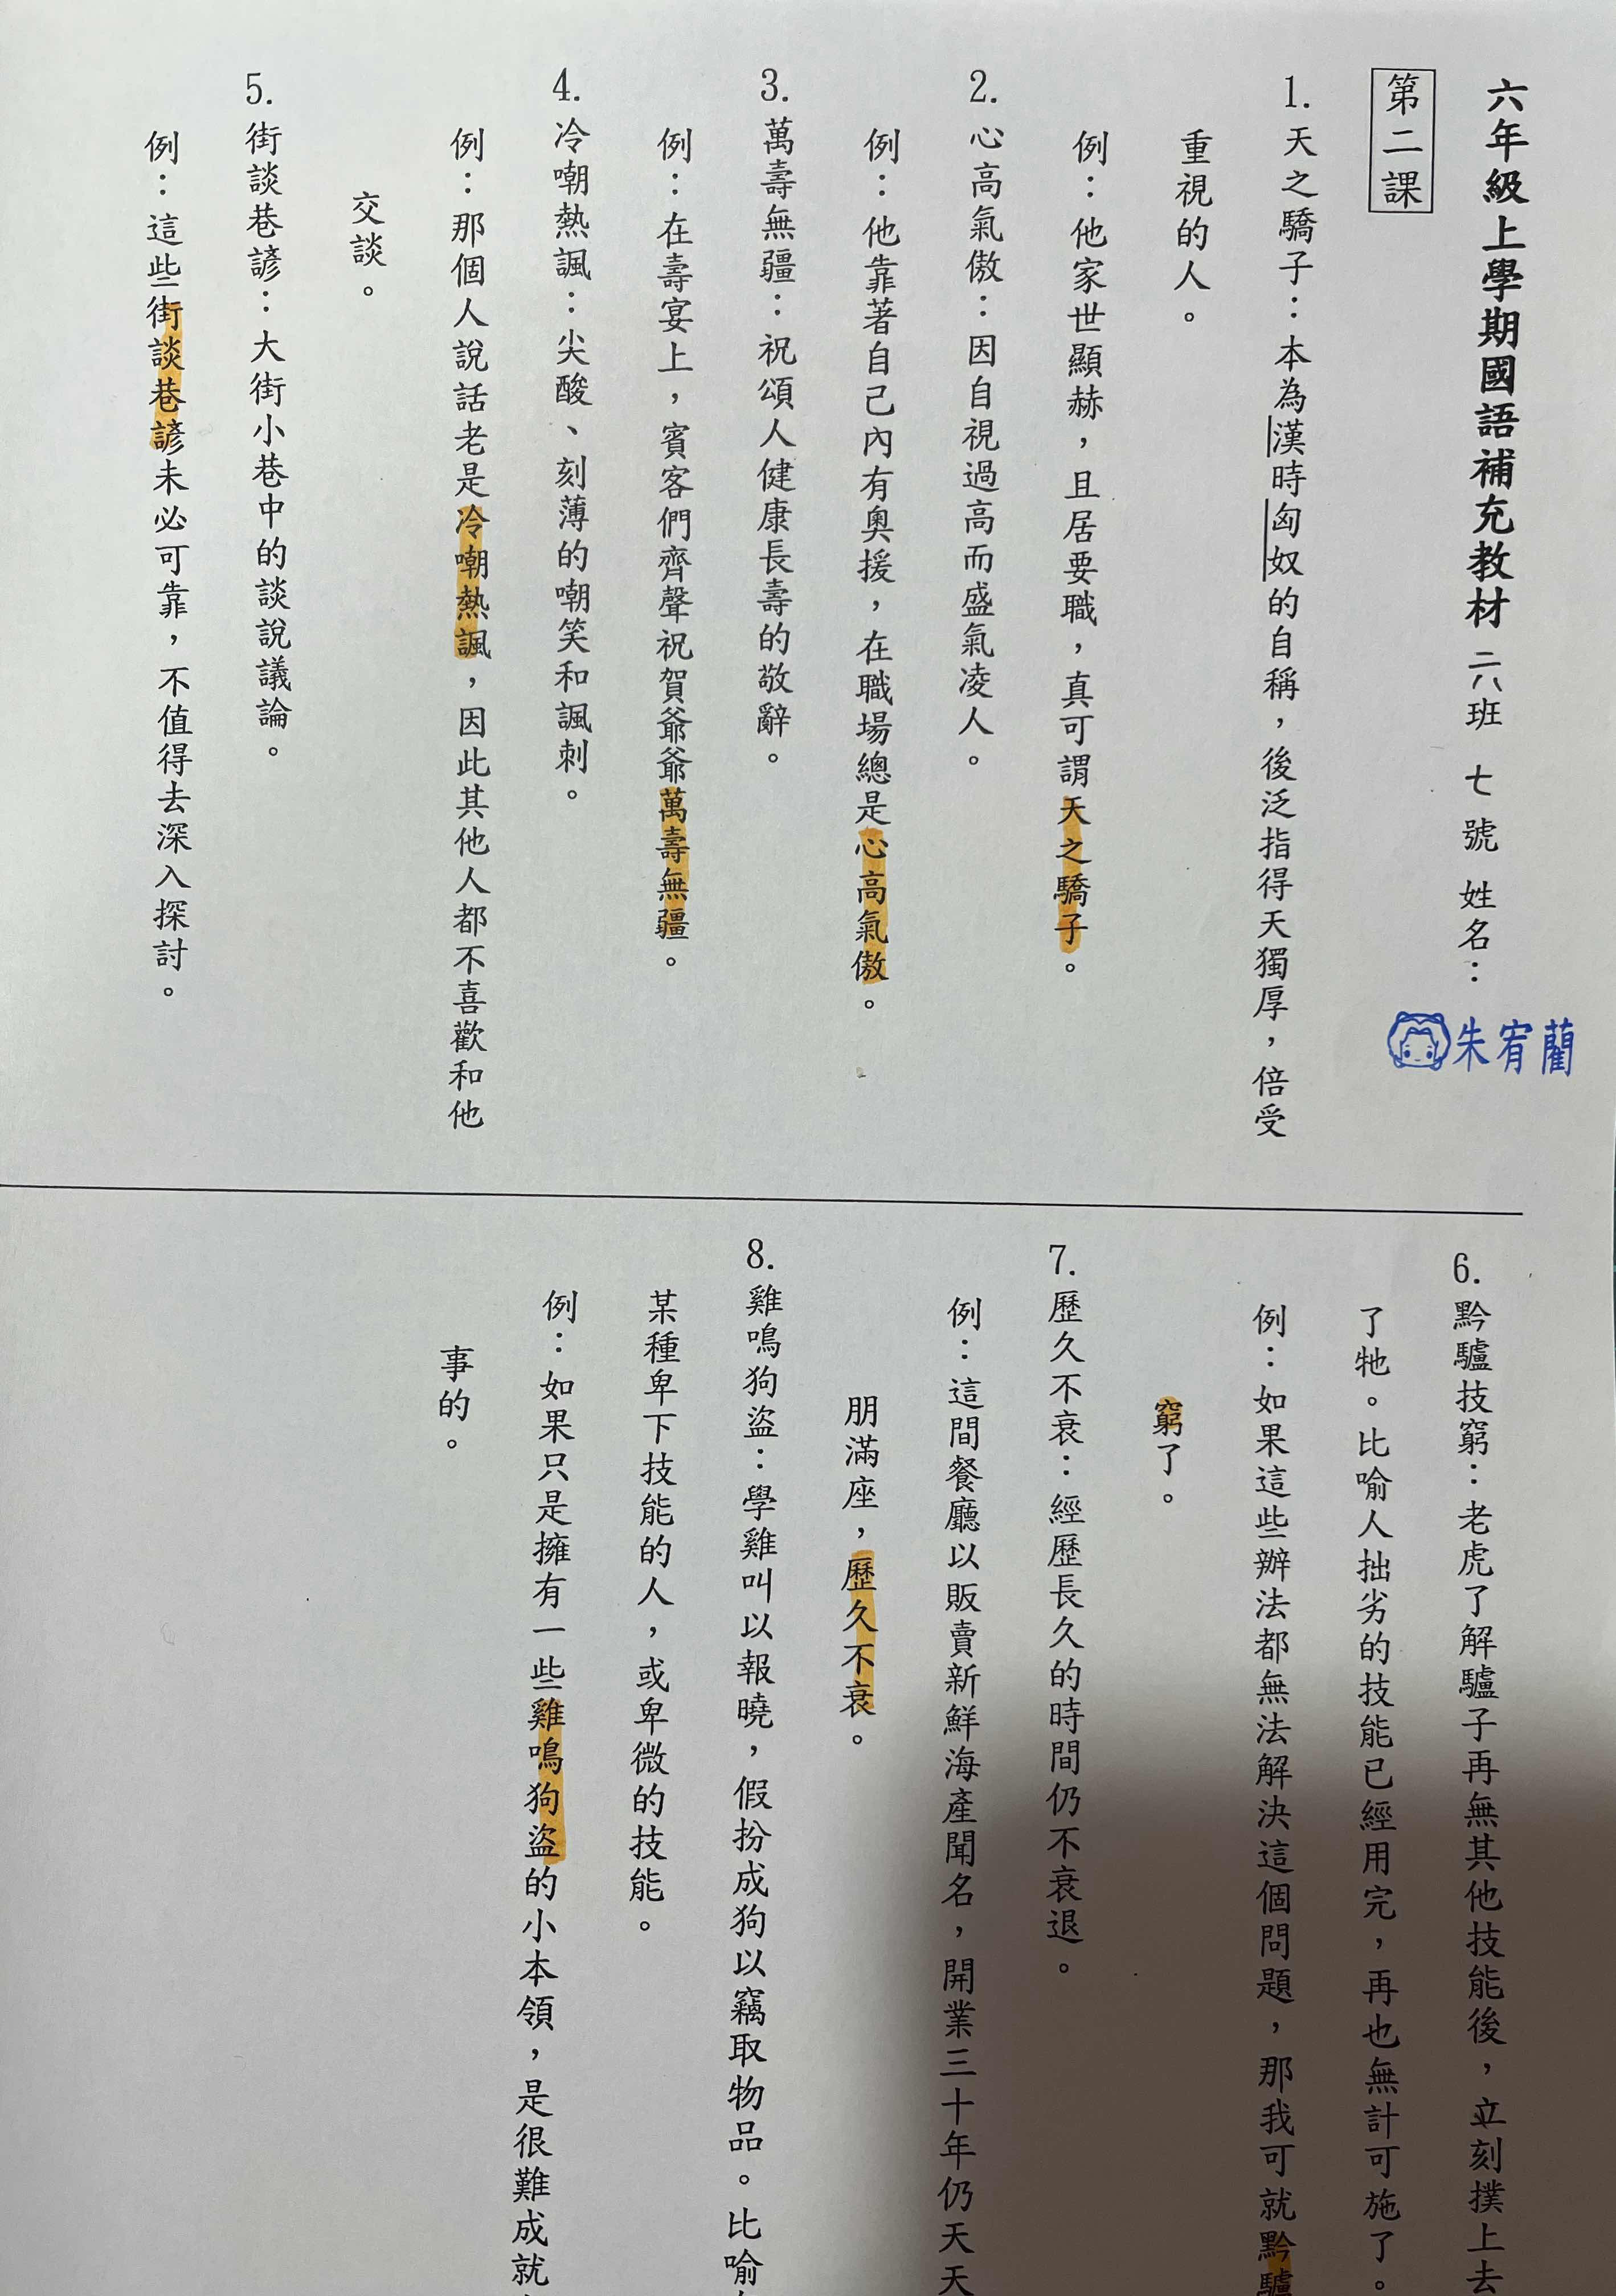 六年級上學期國語補充教材 二八班 七號 姓名：朱宥藺
第二課
1. 天之驕子：本為漢時匈奴的自稱，後泛指得天獨厚，倍受
重視的人。
例：他家世顯赫，且居要職，真可謂天之驕子。
2. 心高氣傲：因自視過高而盛氣凌人。
例：他靠著自己內有奧援，在職場總是心高氣傲。
3. 萬壽無疆：祝頌人健康長壽的敬辭。
例：在壽宴上，賓客們齊聲祝賀爺爺萬壽無疆。
4. 冷嘲熱諷：尖酸、刻薄的嘲笑和諷刺。
例：那個人說話老是冷嘲熱諷，因此其他人都不喜歡和他
交談。
5. 街談巷諺：大街小巷中的談說議論。
例：這些街談巷諺未必可靠，不值得去深入探討。
6. 黔驢技窮：老虎了解驢子再無其他技能後，立刻撲上去
了牠。比喻人拙劣的技能已經用完，再也無計可施了。
例：如果這些辦法都無法解決這個問題，那我可就黔驢
窮了。
7. 歷久不衰：經歷長久的時間仍不衰退。
例：這間餐廳以販賣新鮮海產聞名，開業三十年仍天天
朋滿座，歷久不衰。
8. 雞鳴狗盜：學雞叫以報曉，假扮成狗以竊取物品。比喻
某種卑下技能的人，或卑微的技能。
例：如果只是擁有一些雞鳴狗盜的小本領，是很難成就
事的。